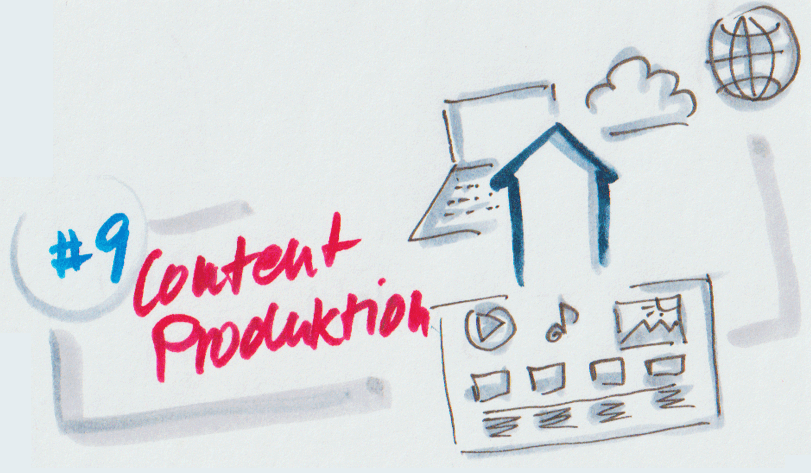 #9
Content
Produktion